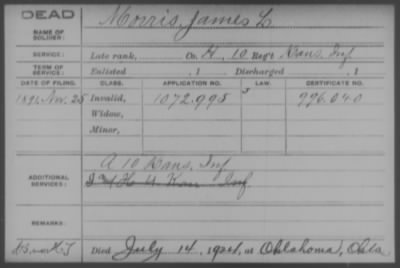 DEAD
NAME OF SOLDIER: Morris, James L
SERVICE: Late rank, Co. H, 10 Reg't Kans. Inf
TERM OF SERVICE: Enlisted , 1 Discharged , 1
DATE OF FILING. CLASS. APPLICATION NO. LAW. CERTIFICATE NO.
1891, Nov. 25 Invalid, 1072.998 996.040
Widow,
Minor,
ADDITIONAL SERVICES: A 10 Kans. Inf
H 4 Kan Inf
REMARKS:
Died July 14, 1921, at Oklahoma, Okla